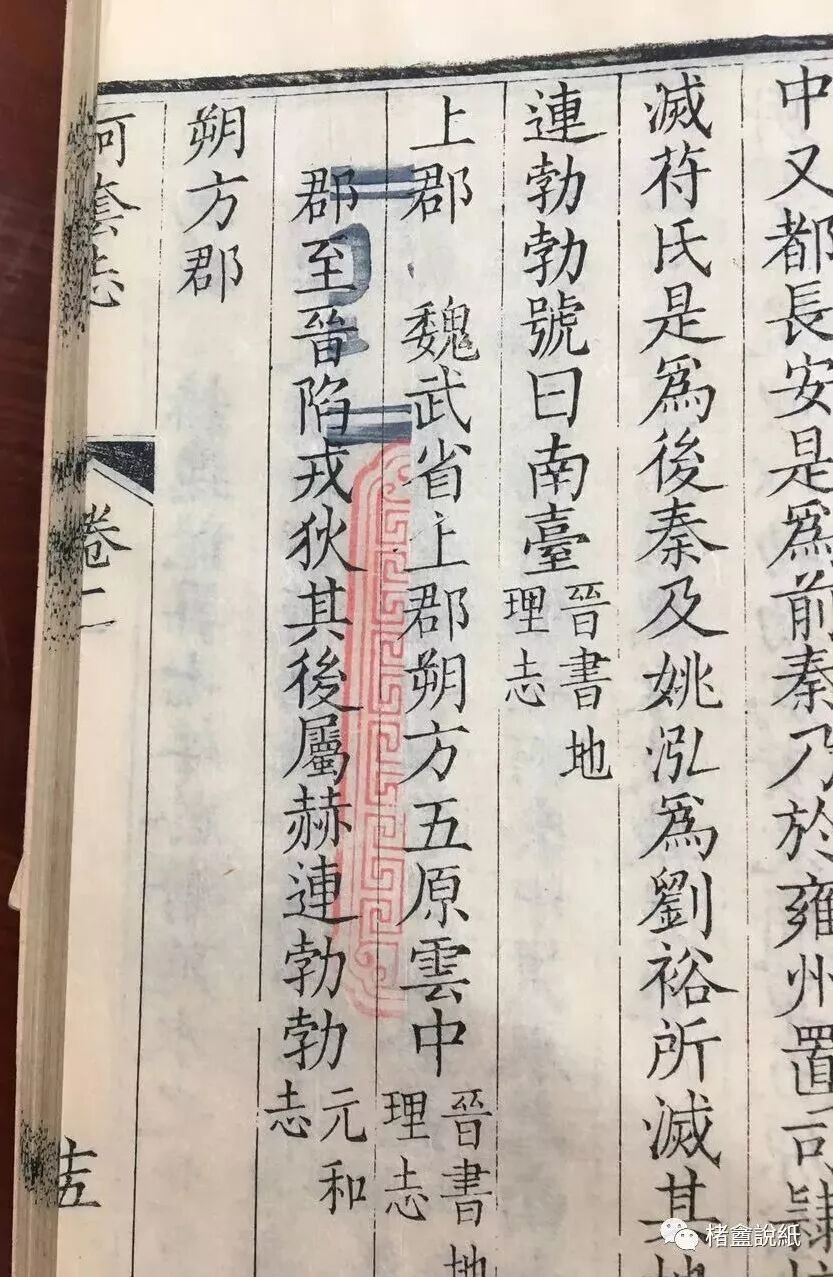 中又都長安是爲前秦乃於雍州置司隸
滅苻氏是爲後秦及姚泓爲劉裕所滅其地
連勃勃號曰南臺晉書地理志
上郡 魏武省上郡朔方五原雲中晉書地理志
郡至晉陷戎狄其後屬赫連勃勃元和志
朔方郡
河套志
卷二
十五
楮龕說紙